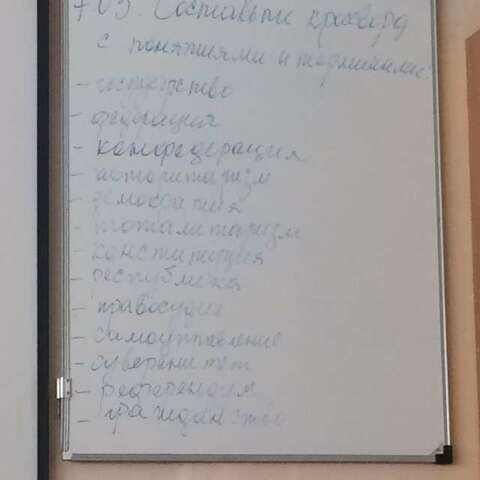 Составить кроссворд
с понятиями и терминами:
- государство
- федерация
- конфедерация
- авторитаризм
- демократия
- тоталитаризм
- конституция
- республика
- правосудие
- самоуправление
- суверенитет
- референдум
- гражданство